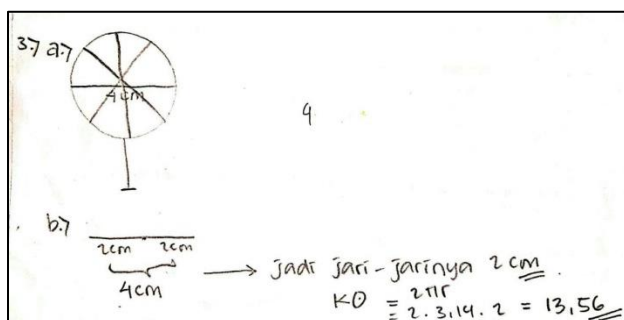 3.7 a.7
4cm
4
b.7
2cm 2cm
4cm
→ jadi jari-jarinya 2 cm.
KO = 2πr
= 2 . 3,14 . 2 = 13,56